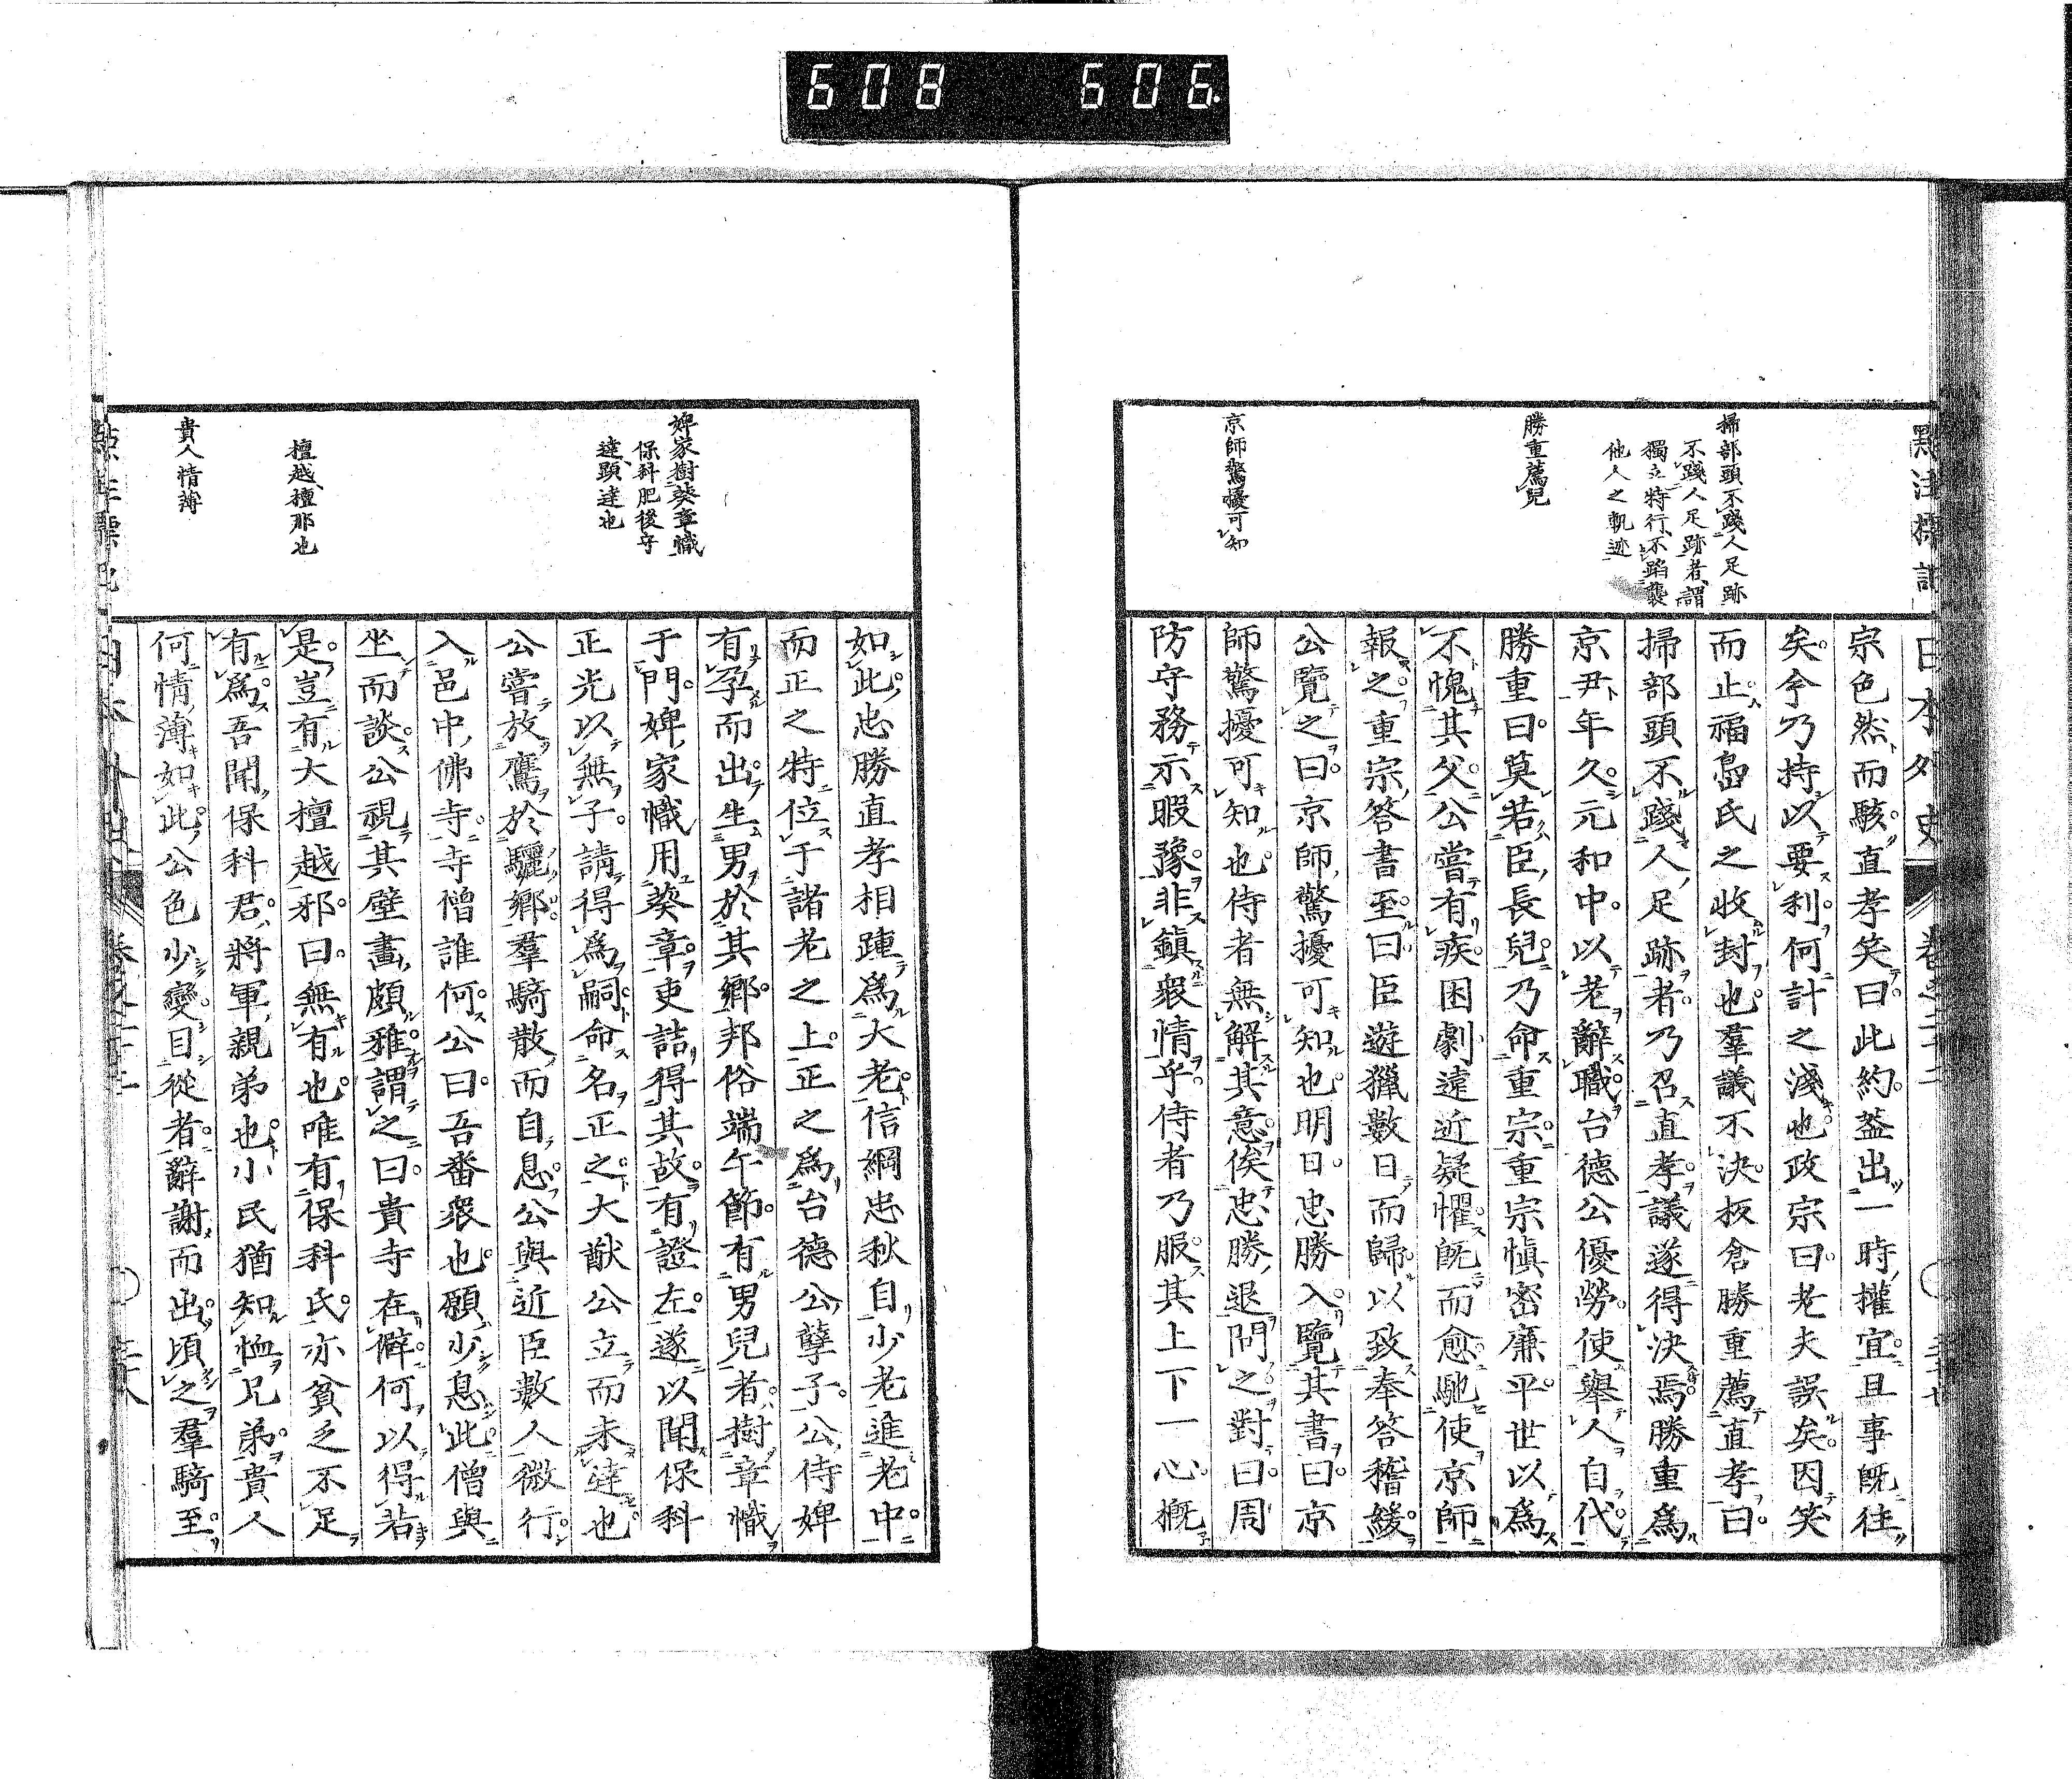 608 606.
日本外史
掃部頭不踐人足跡
不踐人足跡者謂
獨立特行不蹈襲
他人之軌迹
勝重薦兒
京師驚擾可知
宗色然而駭直孝笑曰此約蓋出一時權宜且事既往
矣今乃持以要利何計之淺也政宗曰老夫誤矣因笑
而止福島氏之收封也羣議不決板倉勝重薦直孝曰
掃部頭不踐人足跡者乃召直孝議遂得決焉勝重爲
京尹年久元和中以老辭職台德公優勞使舉人自代
勝重曰莫若臣長兒乃命重宗重宗愼密廉平世以爲
不愧其父公嘗有疾困劇遠近疑懼既而愈馳使京師
報之重宗答書至曰臣遊獵數日而歸以致奉答稽緩
公覽之曰京師驚擾可知也明日忠勝入覽其書曰京
師驚擾可知也侍者無解其意俟忠勝退問之對曰周
防守務示暇豫非鎭衆情乎侍者乃服其上下一心概
婢家樹葵章幟
保科肥後守
達顯達也
檀越檀那也
貴人情薄
如此忠勝直孝相踵爲大老信綱忠秋自少老進老中
而正之特位于諸老之上正之爲台德公孽子公侍婢
有孕而出生男於其鄉邦俗端午節有男兒者樹章幟
于門婢家幟用葵章吏詰得其故有證左遂以聞保科
正光以無子請得爲嗣命名正之大猷公立而未達也
公嘗放鷹於驪鄉羣騎散而自息公與近臣數人微行
入邑中佛寺寺僧誰何公曰吾番衆也願少息此僧與
坐而談公視其壁畫頗雅謂之曰貴寺在僻何以得若
是豈有大檀越邪曰無有也唯有保科氏亦貧乏不足
有爲吾聞保科君將軍親弟也小民猶知恤兄弟貴人
何情薄如此公色少變目從者辭謝而出頃之羣騎至